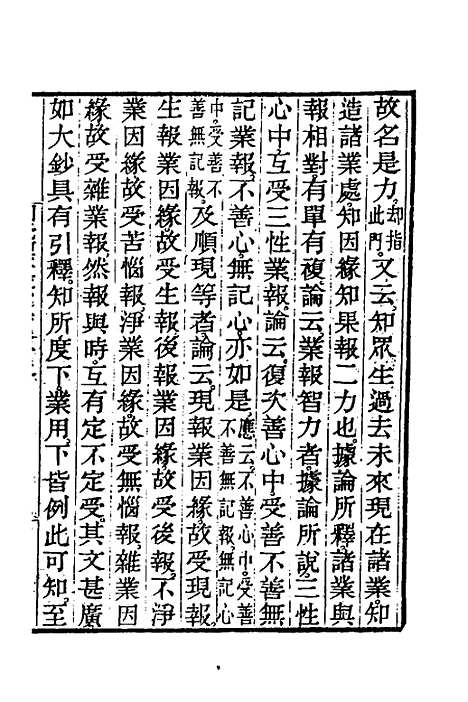 故名是力却指此門又云知眾生過去未來現在諸業知
造諸業處知因緣知果報二力也據論所釋諸業與
報相對有單有複論云業報智力者據論所說三性
心中互受三性業報論云復次善心中受善不善無
記業報不善心無記心亦如是應云不善心中受善不善無記報無記心中受善不善無記報及順現等者論云現報業因緣故受現報
生報業因緣故受生報後報業因緣故受後報不淨
業因緣故受苦惱報淨業因緣故受無惱報雜業因
緣故受雜業報然報與時互有定不定受其文甚廣
如大鈔具有引釋知所度下業用下皆例此可知至